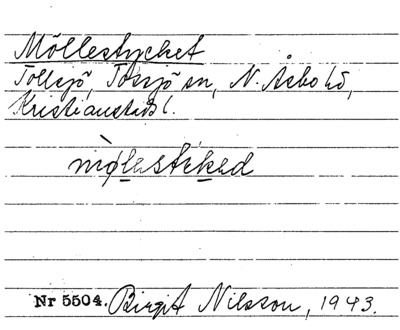 Möllestycket
Tossjö sn, N. Åsbo hd,
Kristianstads l.
mø̀lestikad
Nr 5504. Birgit Nilsson, 1943.